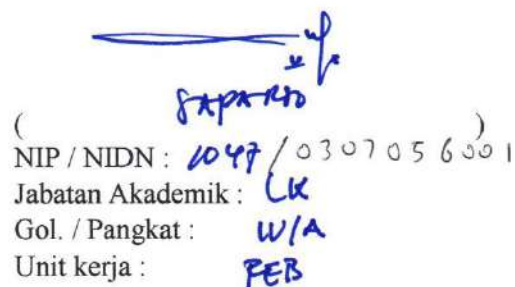 SAPARTO
( )
NIP / NIDN : 1047 / 0307056001
Jabatan Akademik : LK
Gol. / Pangkat : IV/A
Unit kerja : FEB